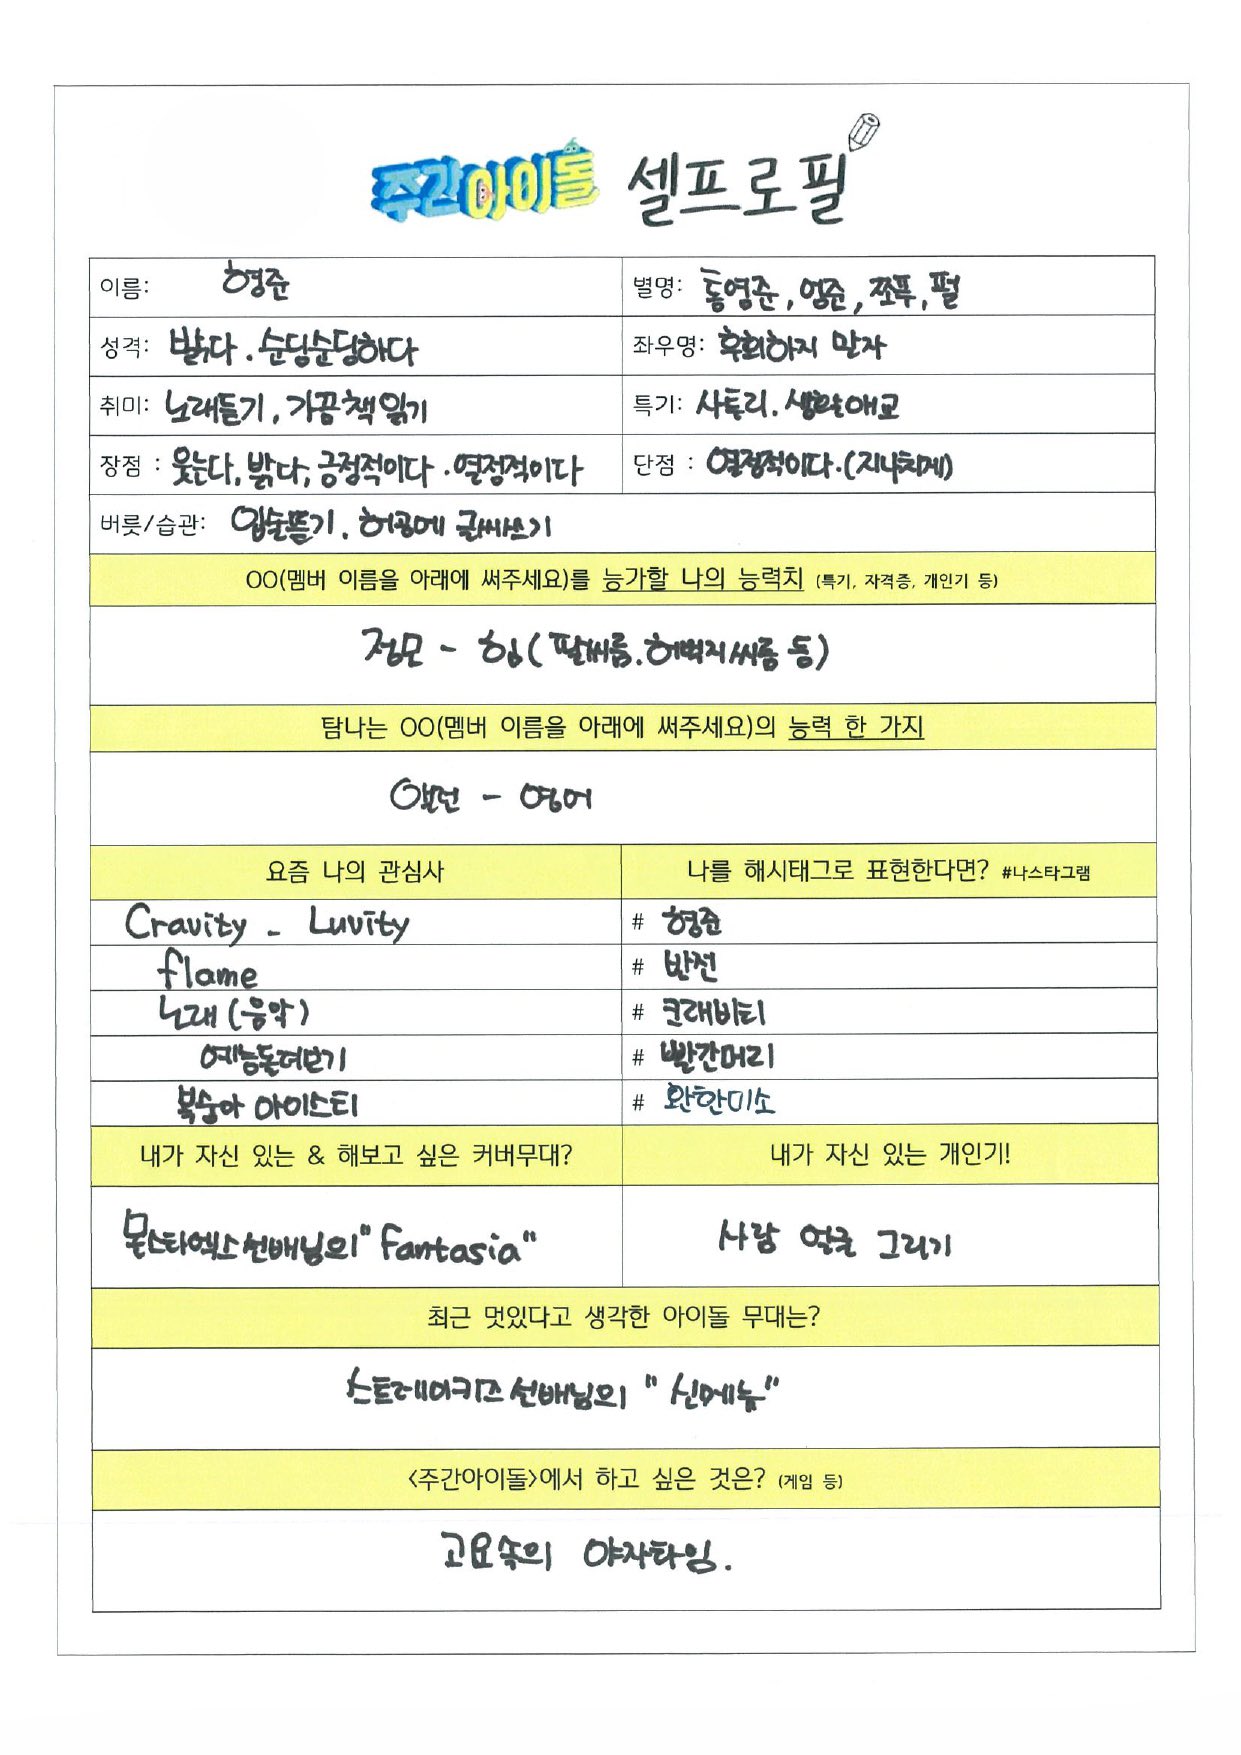 주간아이돌 셀프로필
이름: 형준
별명: 통영준, 엉준, 쪼푸, 펄
성격: 밝다. 순딩순딩하다
좌우명: 후회하지 말자
취미: 노래듣기, 가끔책읽기
특기: 사투리. 생활애교
장점 : 웃는다, 밝다, 긍정적이다. 열정적이다
단점 : 열정적이다.(지나치게)
버릇/습관: 입술뜯기. 허공에 글씨쓰기
OO(멤버 이름을 아래에 써주세요)를 능가할 나의 능력치 (특기, 자격증, 개인기 등)
정모 - 힘(팔씨름.허벅지씨름 등)
탐나는 OO(멤버 이름을 아래에 써주세요)의 능력 한 가지
앨런 - 영어
요즘 나의 관심사
나를 해시태그로 표현한다면? #나스타그램
Cravity - Luvity
# 형준
flame
# 반전
노래(음악)
# 크래비티
예능돌려보기
# 빨간머리
복숭아 아이스티
# 환한미소
내가 자신 있는 & 해보고 싶은 커버무대?
내가 자신 있는 개인기!
몬스타엑스선배님의 "Fantasia"
사람 얼굴 그리기
최근 멋있다고 생각한 아이돌 무대는?
스트레이키즈선배님의 "신메뉴"
<주간아이돌>에서 하고 싶은 것은? (게임 등)
고요속의 야자타임.